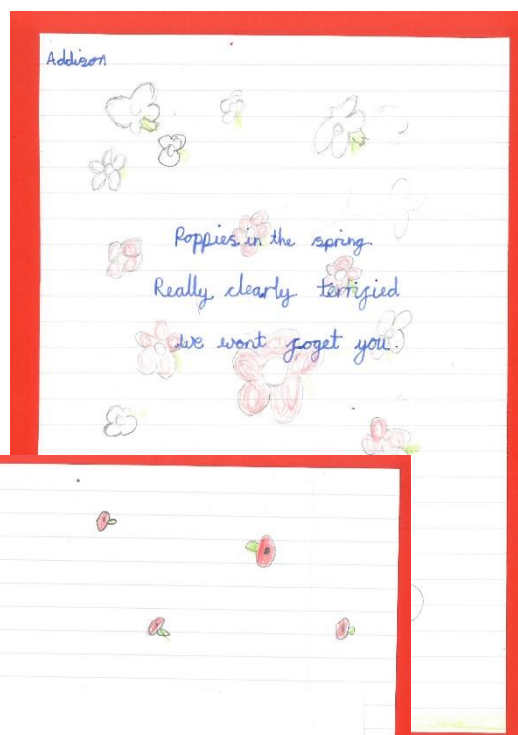 Addison
Poppies in the spring
Really clearly terrified
we wont foget you.